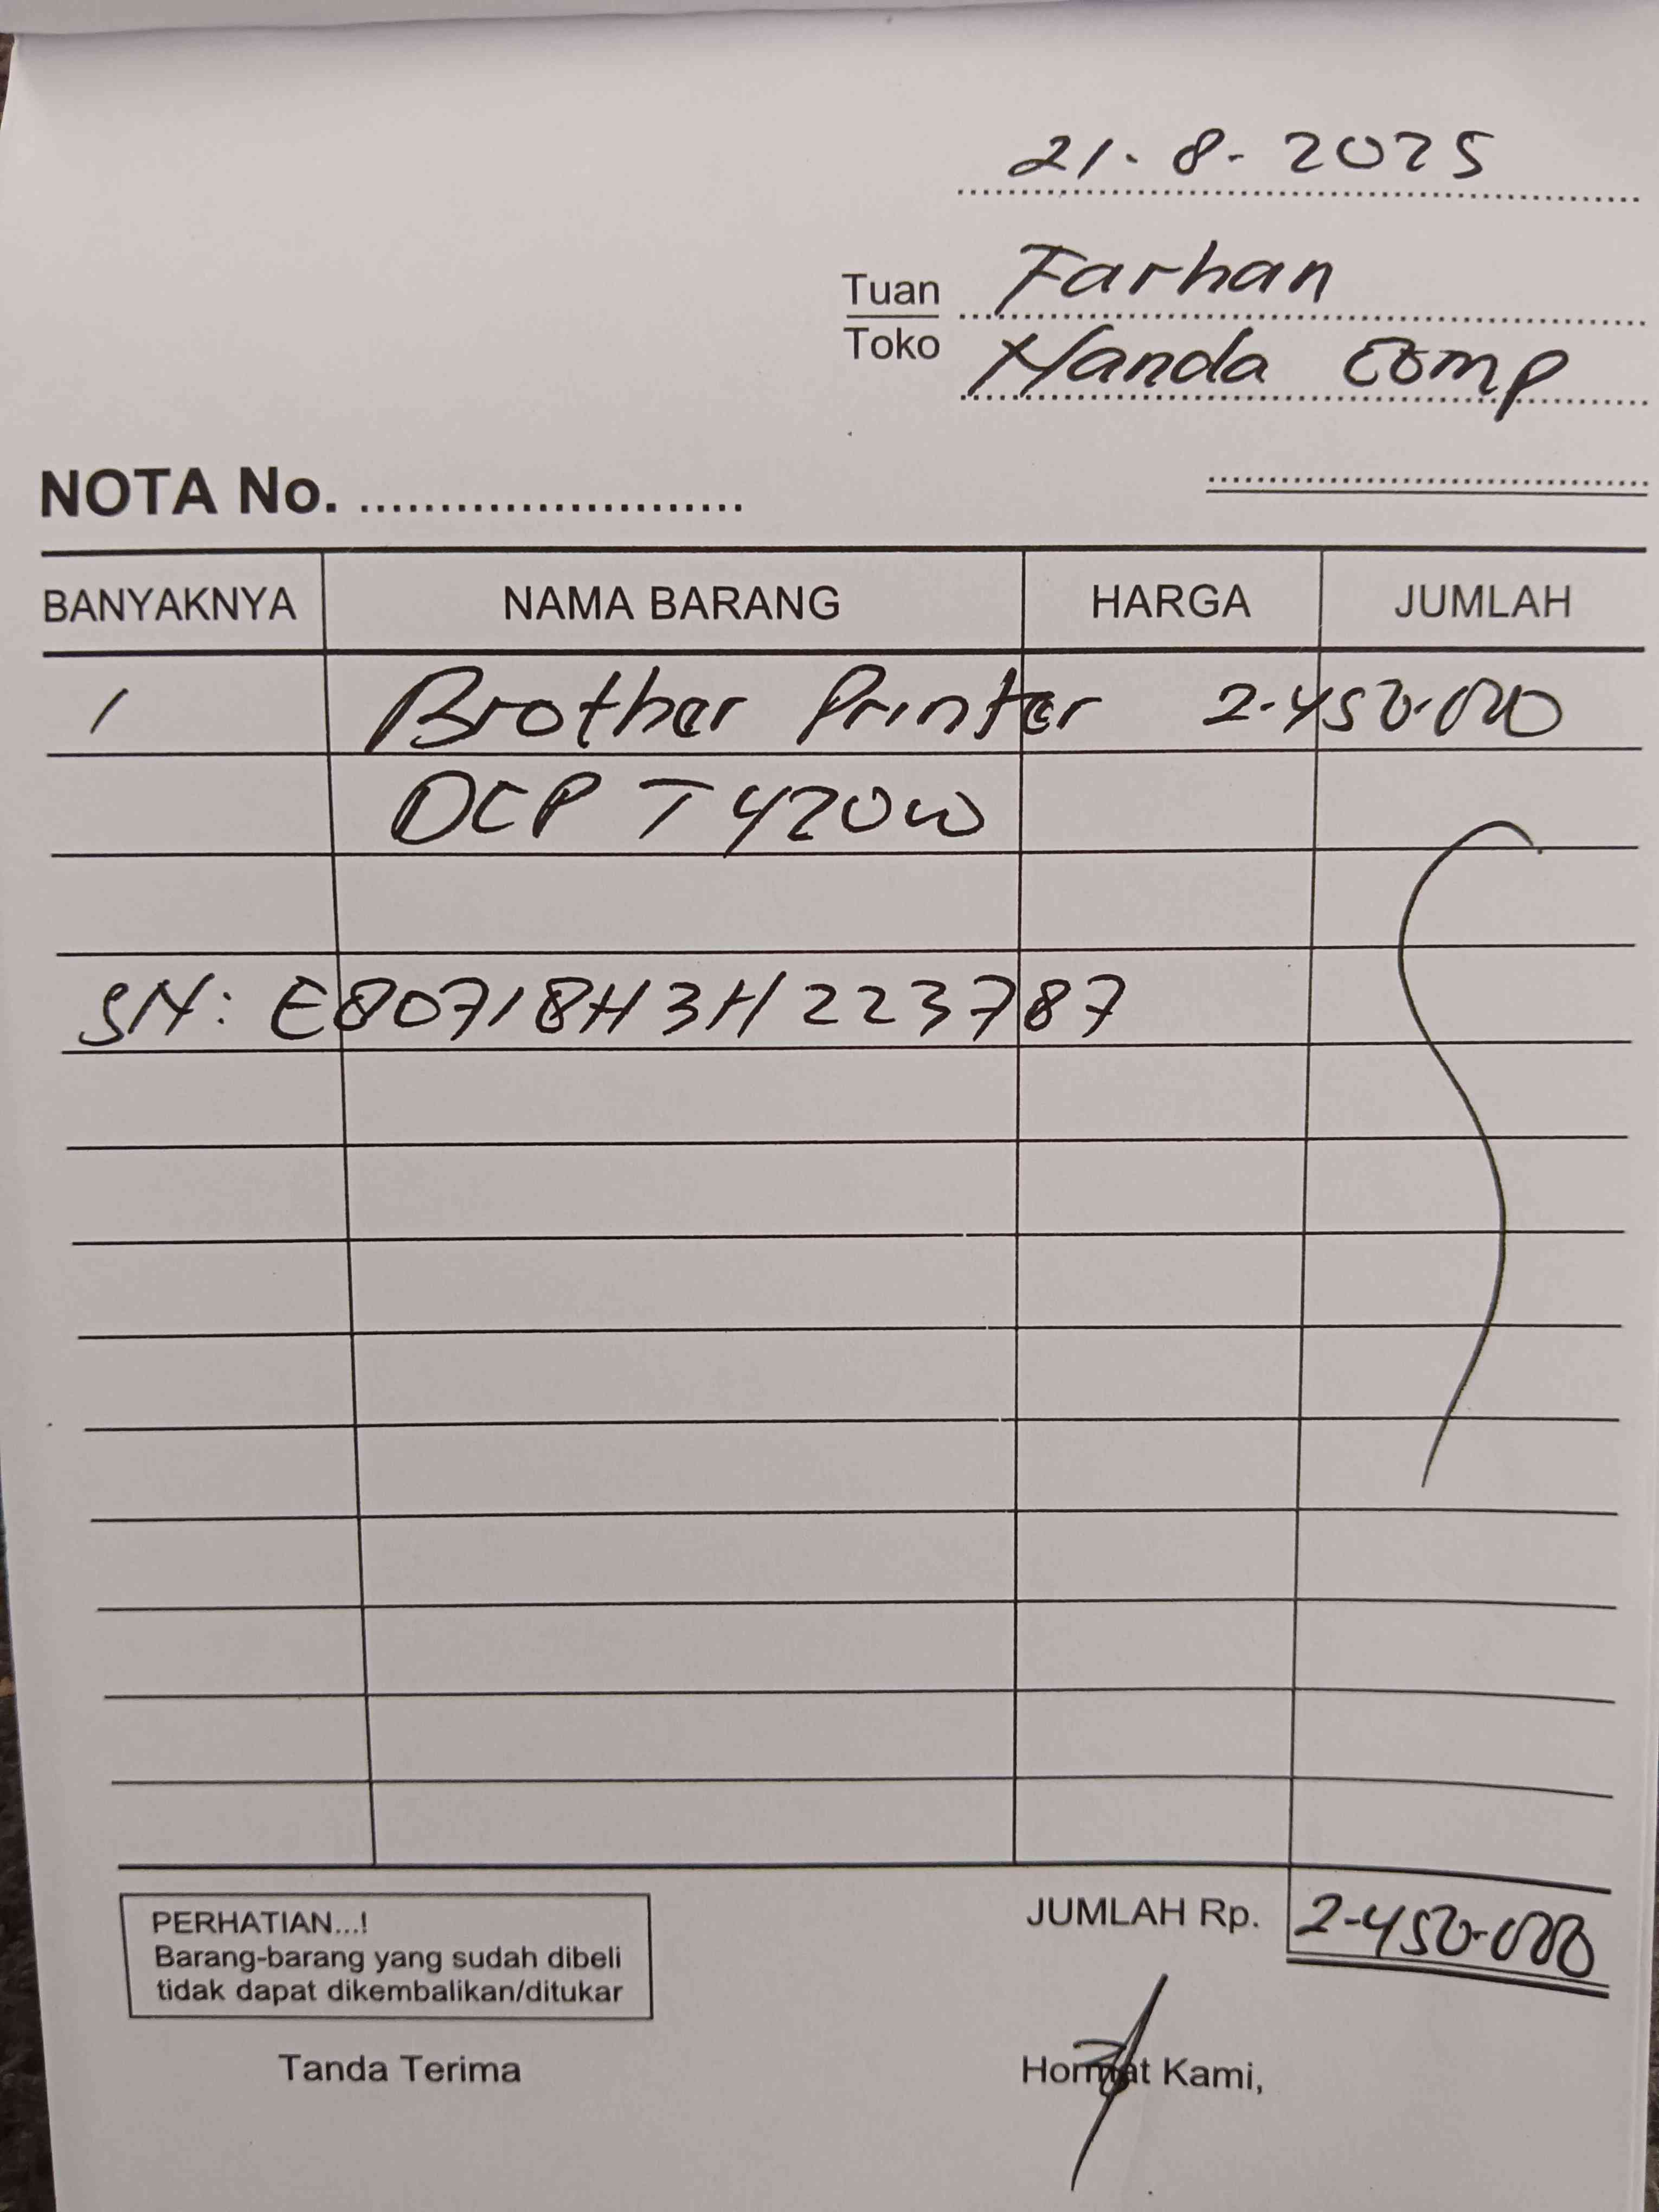 21-8-2025
Tuan Farhan
Toko Handa Comp
NOTA No. ........................
BANYAKNYA NAMA BARANG HARGA JUMLAH
1 Brother Printer 2.450.000
DCP T420W
SN: E80718H3H223787
JUMLAH Rp. 2.450.000
PERHATIAN...!
Barang-barang yang sudah dibeli
tidak dapat dikembalikan/ditukar
Tanda Terima Hormat Kami,